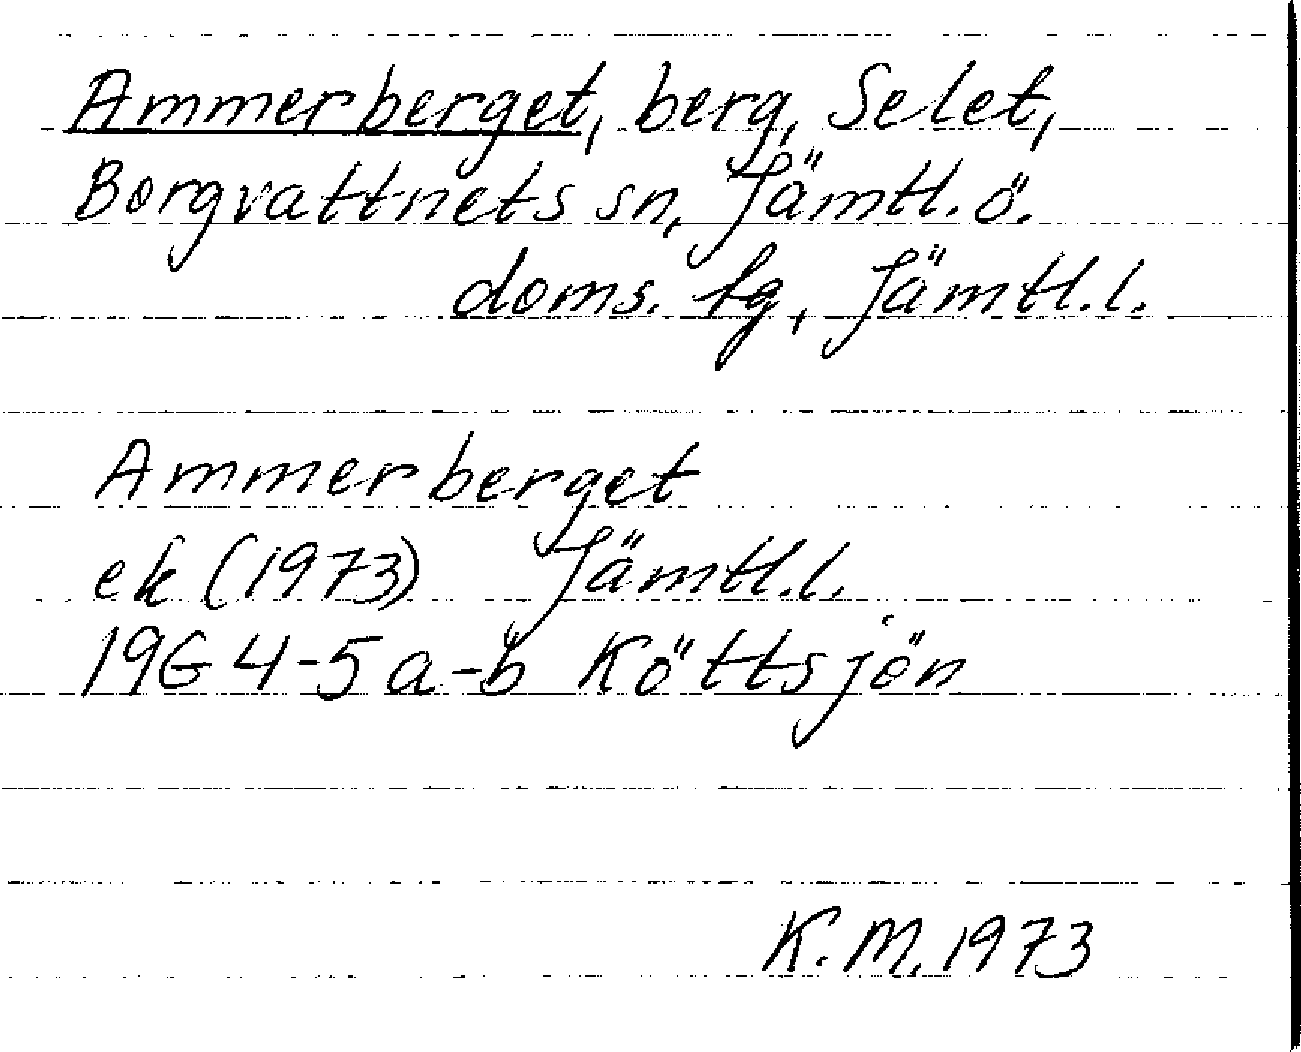 Ammerberget, berg, Selet,
Borgvattnets sn, Jämtl. ö.
doms. fg, Jämtl. l.
Ammerberget
ek (1973) Jämtl. l.
19G 4-5 a-b Köttsjön
K. M. 1973